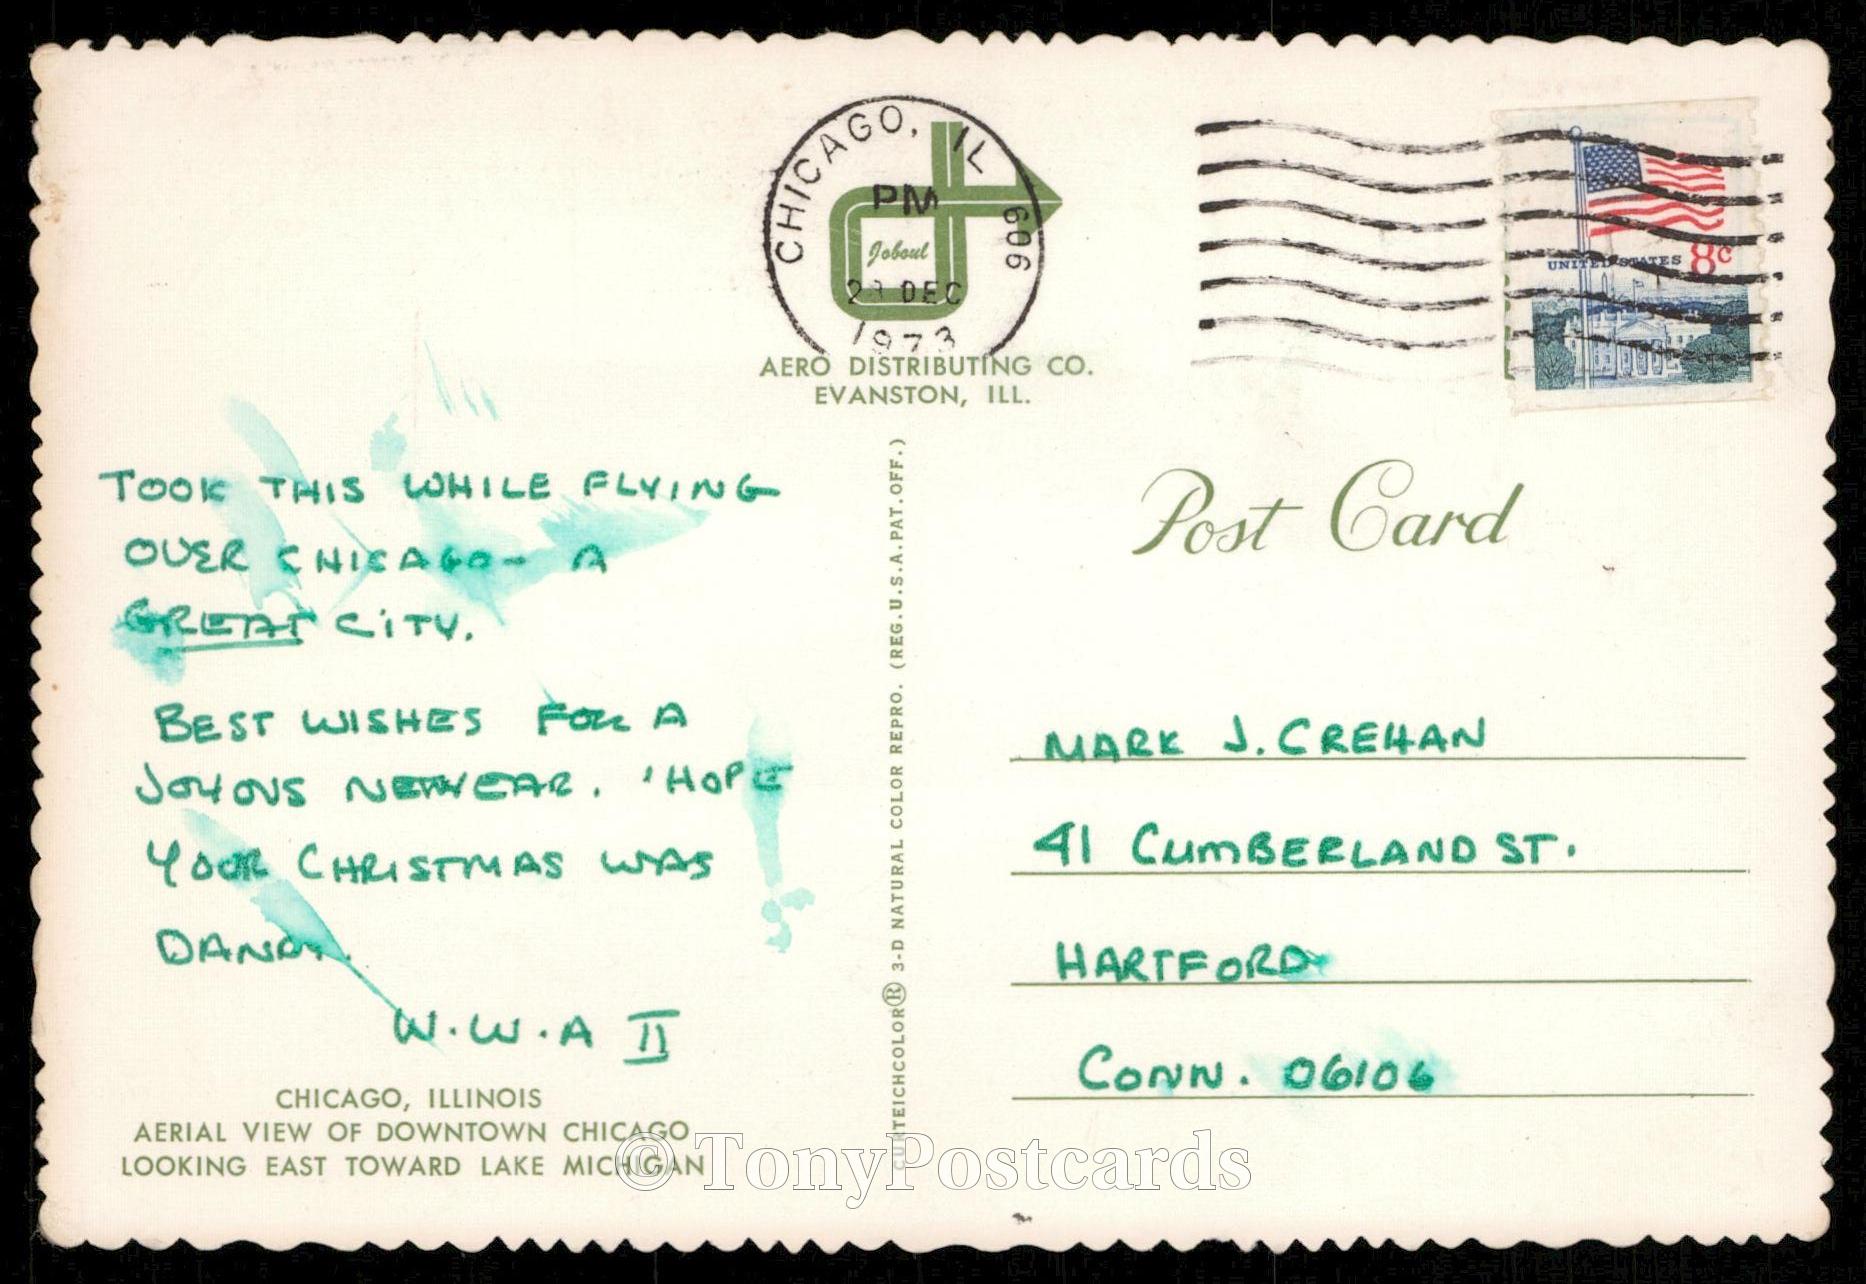 CHICAGO, IL
606
PM
Joboul
DEC
1973
AERO DISTRIBUTING CO.
EVANSTON, ILL.
UNITED STATES 8c
TOOK THIS WHILE FLYING
OVER CHICAGO- A
GREAT CITY.
BEST WISHES FOR A
JOYOUS NEWYEAR. 'HOPE
YOUR CHRISTMAS WAS
DANDY.
W.W.A II
CHICAGO, ILLINOIS
AERIAL VIEW OF DOWNTOWN CHICAGO
LOOKING EAST TOWARD LAKE MICHIGAN
CURTEICHCOLOR® 3-D NATURAL COLOR REPRO. (REG.U.S.A.PAT.OFF.)
Post Card
MARK J. CREHAN
41 CUMBERLAND ST.
HARTFORD
CONN. 06106
© TonyPostcards